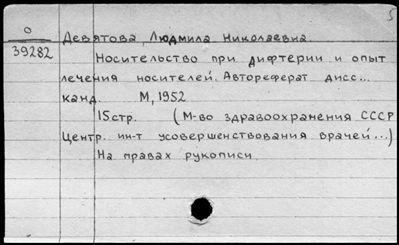 5
О
39282
Девятова, Людмила Николаевна.
Носительство при дифтерии и опыт
лечения носителей. Автореферат дисс...
канд. М, 1952
15стр. (М-во здравоохранения СССР
Центр. ин-т усовершенствования врачей...)
На правах рукописи.